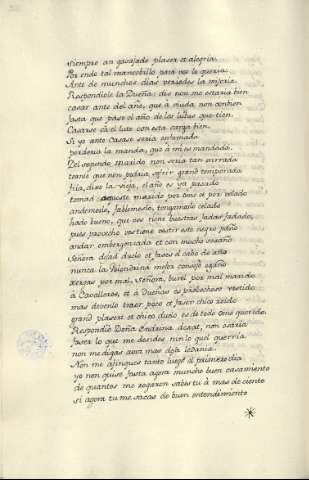 siempre an gasajade plaser et alegria
Por ende tal mancebillo para vos lo querria
Ante de munchos dias veriades la mejoria
Respondiole la Dueña: dis non me estaria bien
casar ante del año, que à viuda non convien
fasta que pase el año de los lutos que tien
Casarse ca el luto con esta carga bien
Si yo ante casase seria enfamada
perderia la manda, que à mi es mandada
Del segundo marido non seria tan onrrada
ternie que non podria sofrir grand temporada
fija, dixo la vieja, el año es ya pasado
tomad aqueste marido por ome et por velado
andemoslo, fablemoslo, tengamoslo celado
hado bueno, que vos tiene vuestras fadas fadado,
que provecho vos tiene vestir este negro paño
andar embergonzada et con mucho sosaño
Señora dejad duelo et faced el cabo de año
nunca la golondrina mejor consejó ogaño
xergas por mal, Señora, buril por mal marido
à Cavalleros, et à Dueñas es probechoso vestido
mas devenlo traer poco et facer chico roido
grand placer et chico duelo es de todo ome querido
Respondió Doña Endrina dexat, non osaria
fasta lo que me desides nin lo quel querria
non me digas agora mas desa ledania
Non me afinques tanto luego el primero dia
yo non quise fasta agora muncho buen casamiento
de quantos me rogaron sabes tu à mas de ciento
si agora tu me sacas de buen entendimiento